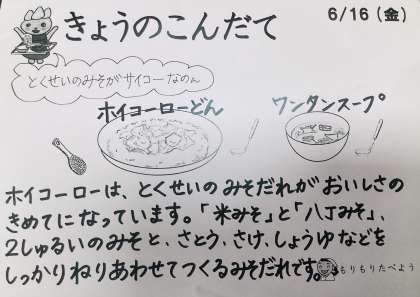 きょうのこんだて
6/16(金)
とくせいのみそがサイコーなのん
ホイコーローどん
ワンタンスープ
ホイコーローは、とくせいのみそだれがおいしさの
きめてになっています。「米みそ」と「八丁みそ」、
2しゅるいのみそと、さとう、さけ、しょうゆなどを
しっかりねりあわせてつくるみそだれです。
もりもりたべよう